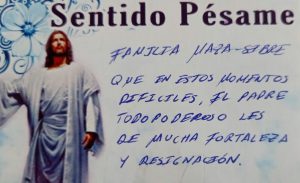 Sentido Pésame
FAMILIA MAZA-SEBRE
QUE EN ESTOS MOMENTOS
DIFICILES, EL PADRE
TODOPODEROSO LES
DE MUCHA FORTALEZA
Y RESIGNACIÓN.